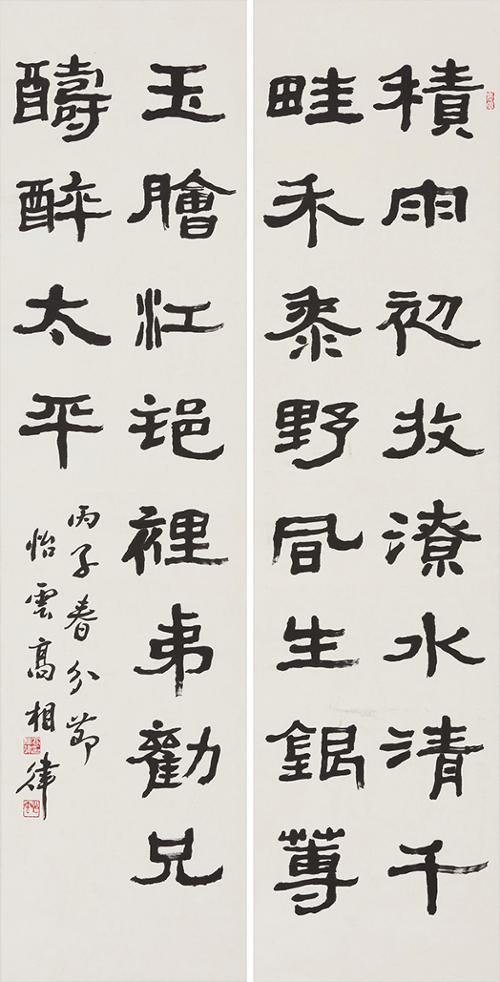 積雨初收潦水清千
畦禾黍野風生銀蓴
玉膾江邨裡弟勸兄
醻醉太平
丙子春分節
怡雲高相律